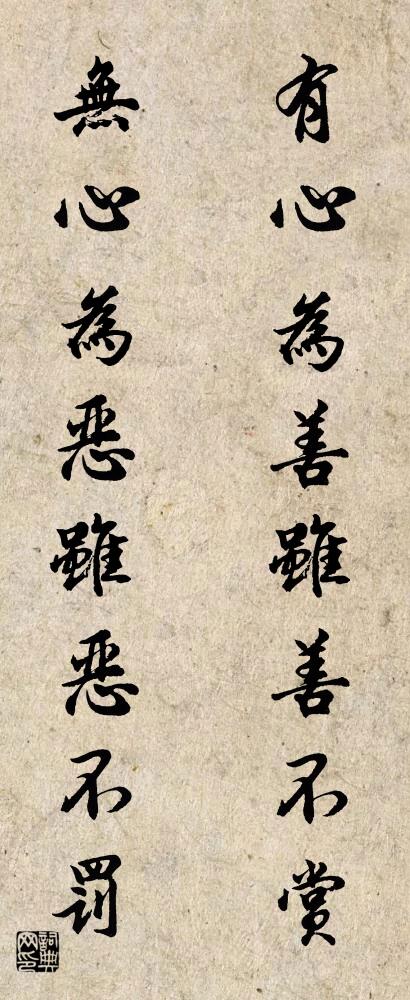 有心為善雖善不賞
無心為惡雖惡不罰
詞典网印